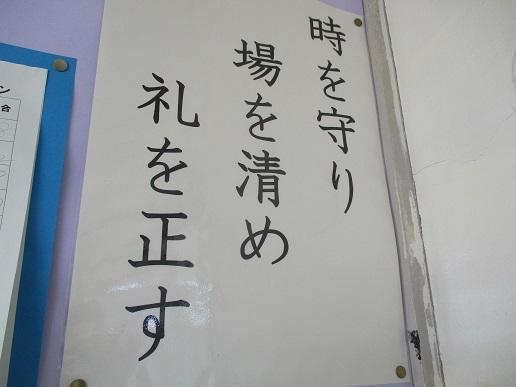 時を守り
場を清め
礼を正す
ン
合